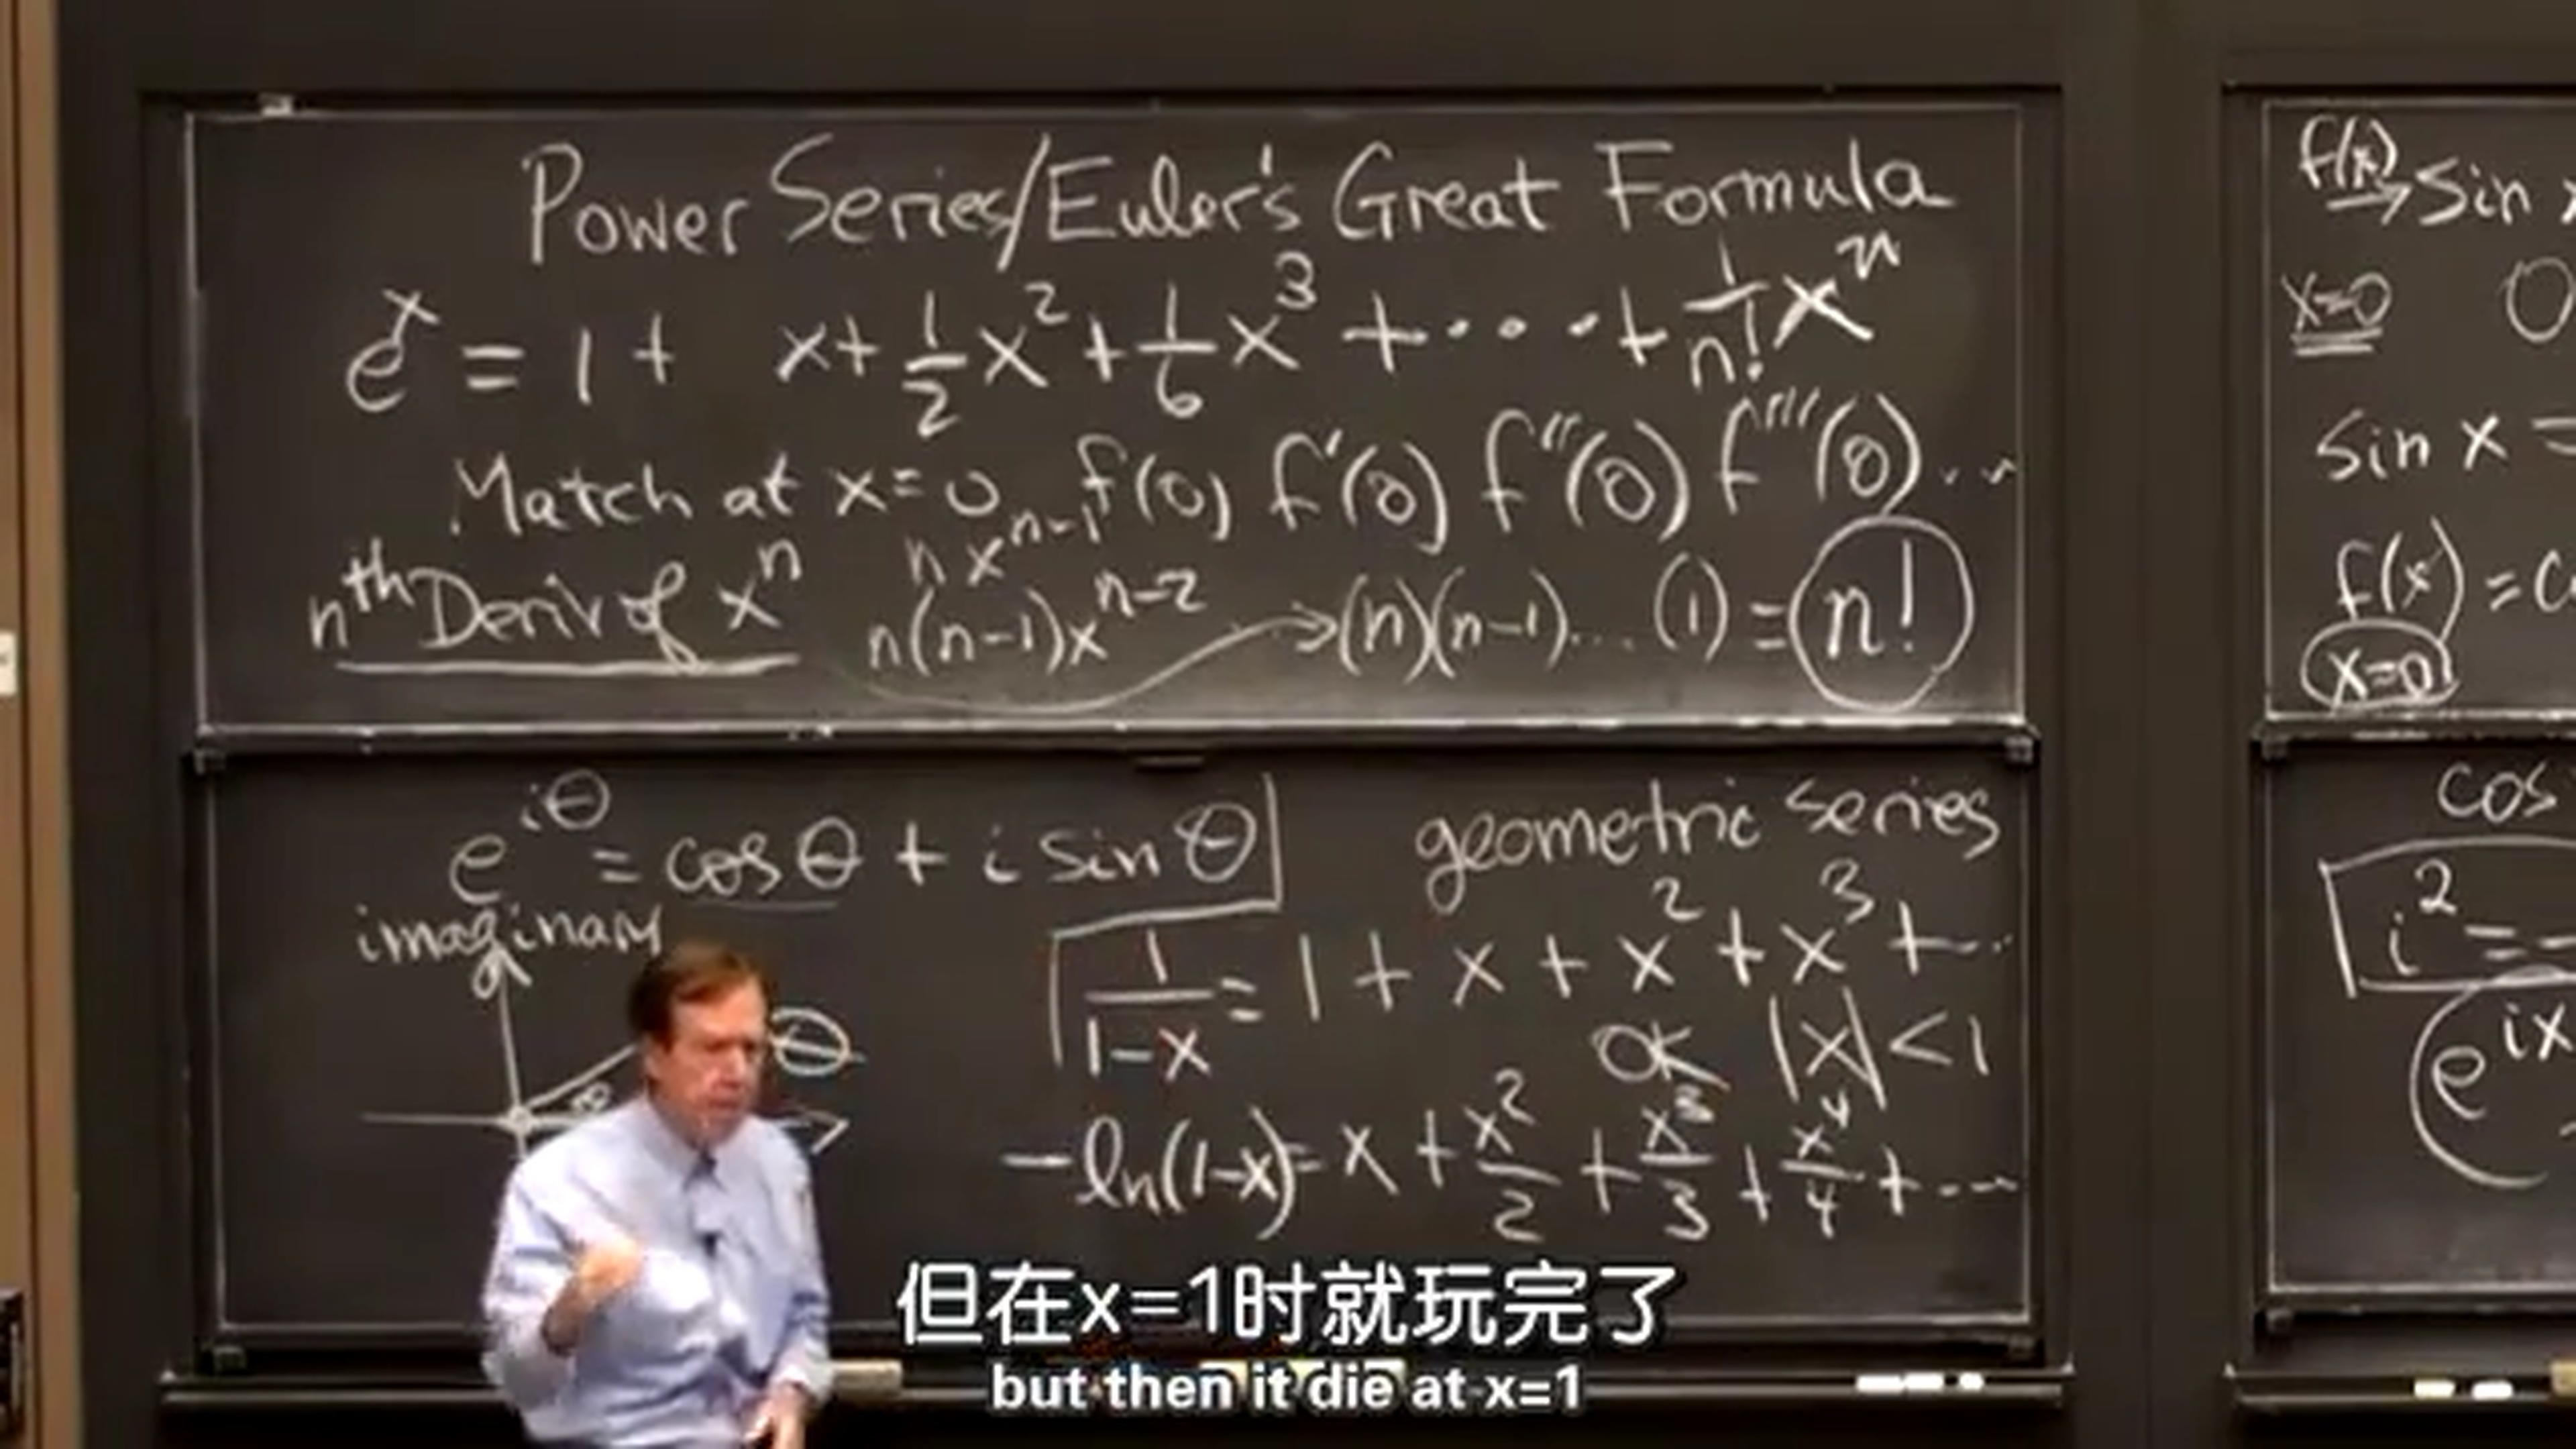 Power Series/Euler's Great Formula
e^x = 1 + x + 1/2 x^2 + 1/6 x^3 + ··· + 1/n! x^n
Match at x=0 f(0) f'(0) f''(0) f'''(0)...
n^th Deriv of x^n n x^{n-1}
n(n-1)x^{n-2} → (n)(n-1)...(1) = n!
e^{iθ} = cos θ + i sin θ
imaginary
θ
θ
geometric series
1/(1-x) = 1 + x + x^2 + x^3 + ..
OK |x| < 1
-ln(1-x) = x + x^2/2 + x^3/3 + x^4/4 + ...
f(x) → sin x
x=0 0
sin x =
f(x) = c
x=0
cos
i^2 = -
e^{ix}
但在x=1时就玩完了
but then it die at x=1